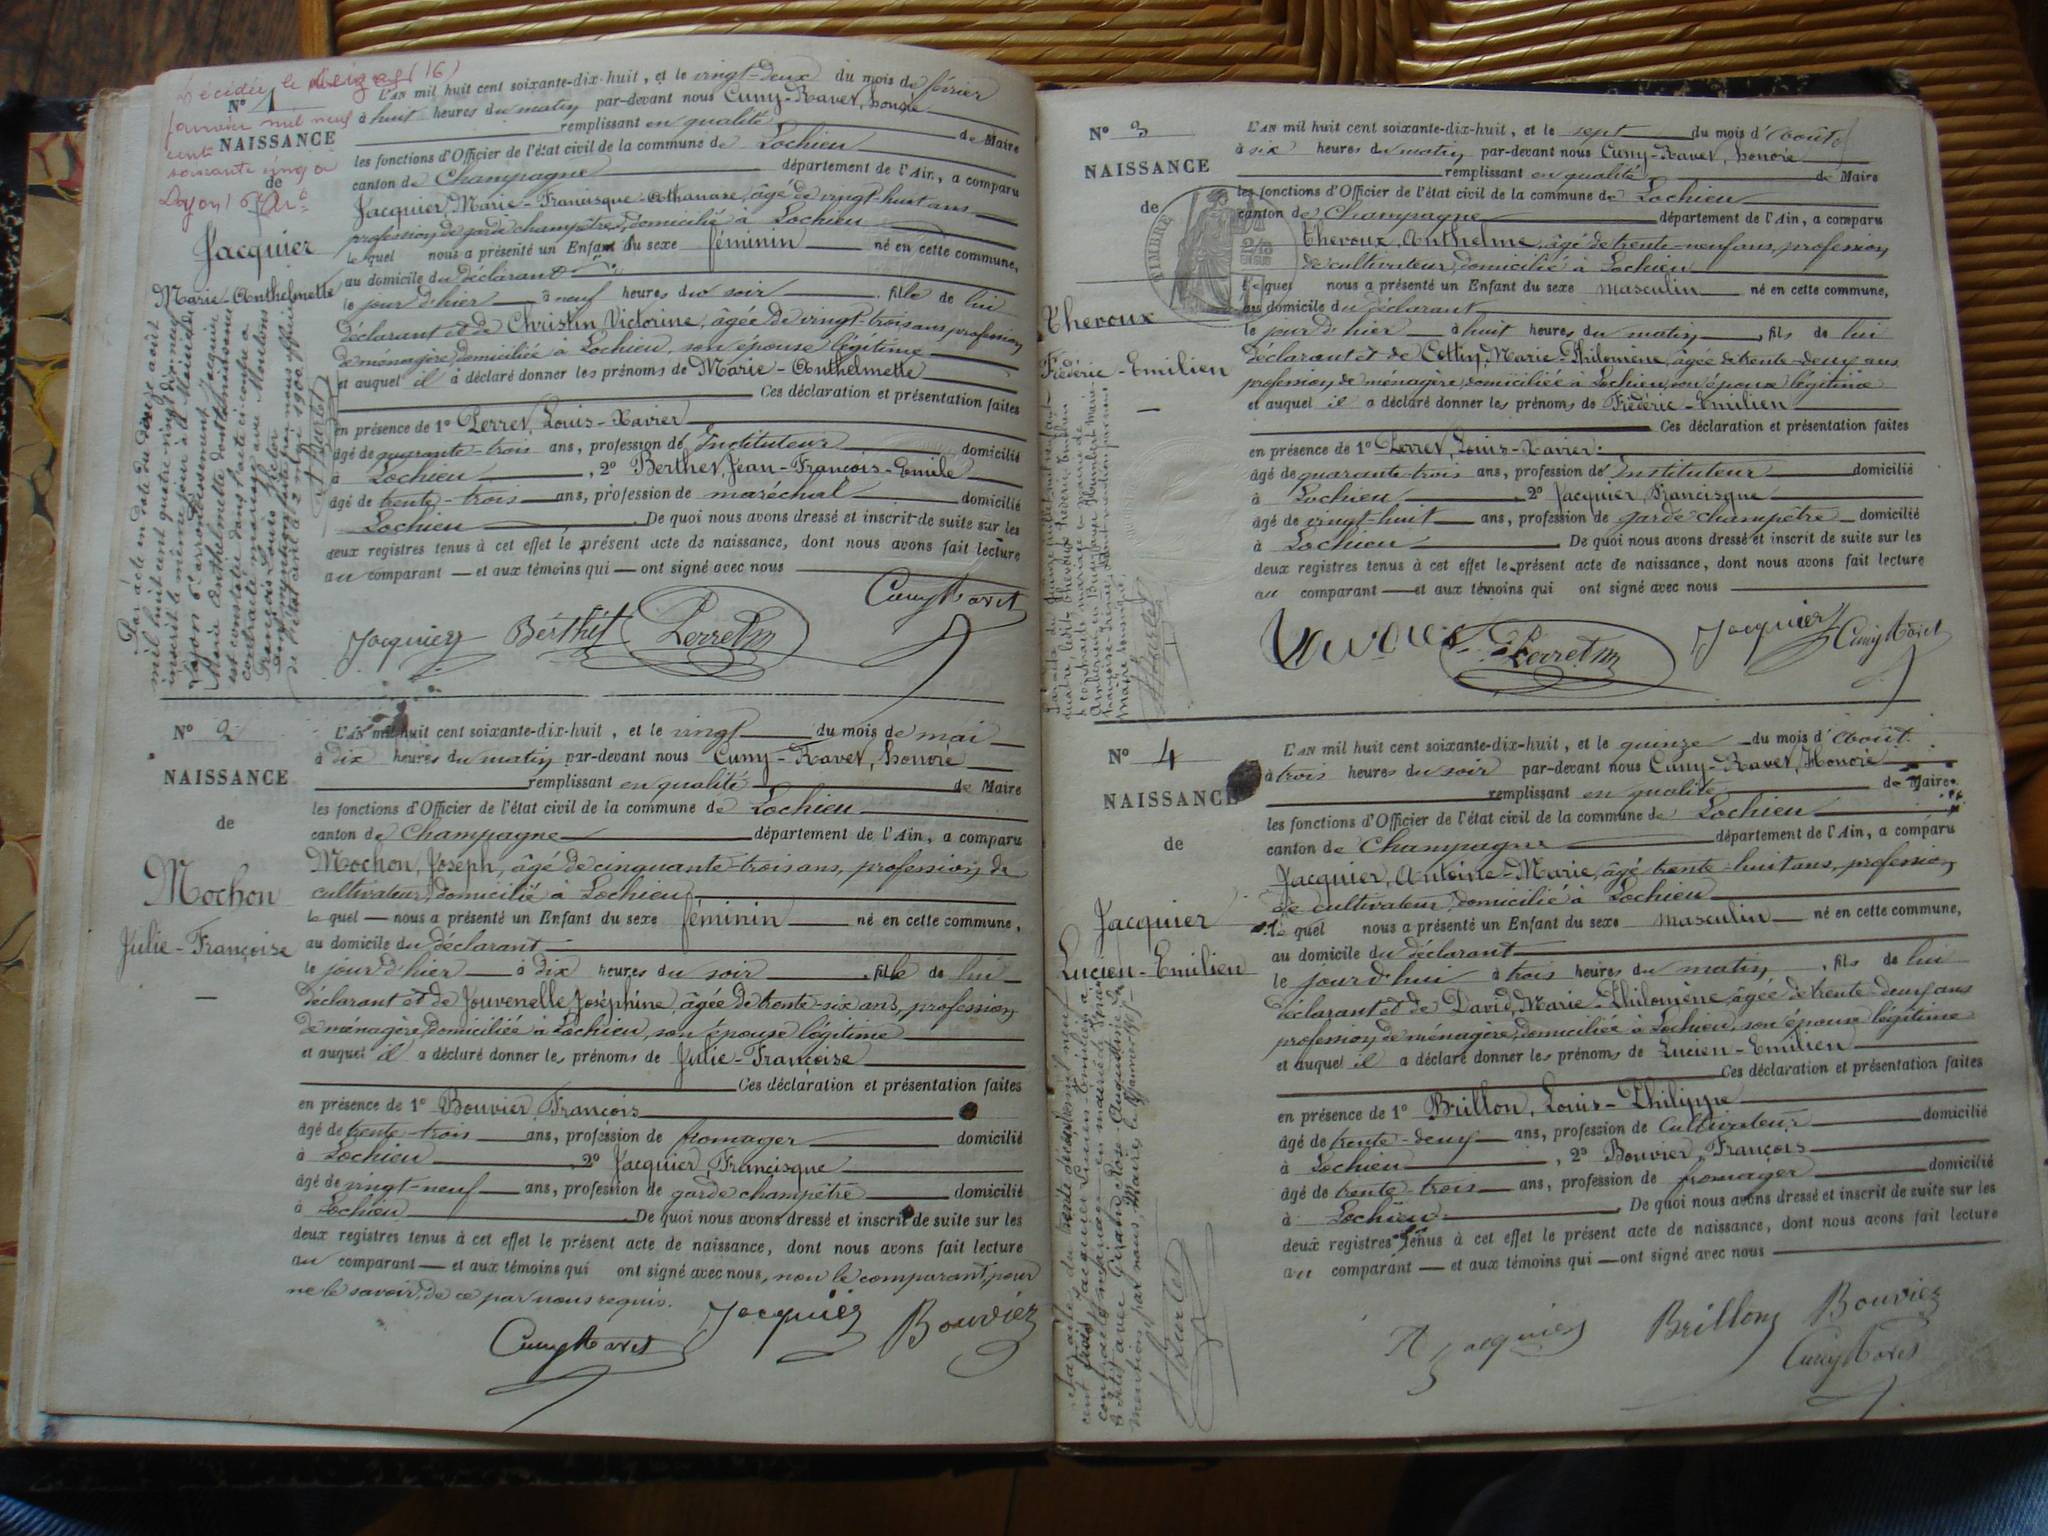 Décédée le seize (16)
janvier mil neuf
cent
soixante cinq à
Lyon 6e Arrt
No 1
NAISSANCE
de
Jacquier
Marie-Anthelmette
Par acte en date du onze août
mil huit cent quatre-vingt dix neuf
inscrit le même jour à la Mairie de
Lyon 6e arrondissement, Jacquier
Marie Anthelmette dont la naissance
est constatée dans l'acte ci-contre a
contracté mariage avec Moulons
François Louis Victor
L'AN mil huit cent soixante-dix-huit, et le vingt-deux du mois de février
à huit heures du matin par-devant nous Cuny-Ravet, honoré
remplissant en qualité de Maire
les fonctions d'Officier de l'état civil de la commune de Lochieu
canton de Champagne département de l'Ain, a comparu
Jacquier, Marie-Francisque-Athanase, âgé de vingt-huit ans
profession de garde champêtre, domicilié à Lochieu
lequel nous a présenté un Enfant du sexe féminin né en cette commune,
au domicile du déclarant
le jour d'hier à neuf heures du soir fille de lui
déclarant et de Christin, Victorine, âgée de vingt-trois ans, profession
de ménagère, domiciliée à Lochieu, son épouse légitime
et auquel il a déclaré donner les prénoms de Marie-Anthelmette
Ces déclaration et présentation faites
en présence de 1o Perret, Louis-Xavier
âgé de quarante-trois ans, profession de Instituteur domicilié
à Lochieu, 2o Berthet, Jean-François-Emile
âgé de trente-trois ans, profession de maréchal domicilié
Lochieu De quoi nous avons dressé et inscrit de suite sur les
deux registres tenus à cet effet le présent acte de naissance, dont nous avons fait lecture
au comparant et aux témoins qui ont signé avec nous
Cuny Ravet
Jacquier Berthet Perret
No 2
NAISSANCE
de
Mochon
Julie-Françoise
L'AN mil huit cent soixante-dix-huit, et le vingt du mois de mai
à dix heures du matin par-devant nous Cuny-Ravet, honoré
remplissant en qualité de Maire
les fonctions d'Officier de l'état civil de la commune de Lochieu
canton de Champagne département de l'Ain, a comparu
Mochon, Joseph, âgé de cinquante-trois ans, profession de
cultivateur, domicilié à Lochieu
lequel nous a présenté un Enfant du sexe féminin né en cette commune,
au domicile du déclarant
le jour d'hier à dix heures du soir fille de lui
déclarant et de Jouvenelle Joséphine, âgée de trente-six ans, profession
de ménagère, domiciliée à Lochieu, son épouse légitime
et auquel il a déclaré donner les prénoms de Julie-Françoise
Ces déclaration et présentation faites
en présence de 1o Bouvier, François
âgé de trente-trois ans, profession de fromager domicilié
à Lochieu, 2o Jacquier, Francisque
âgé de vingt-neuf ans, profession de garde champêtre domicilié
à Lochieu De quoi nous avons dressé et inscrit de suite sur les
deux registres tenus à cet effet le présent acte de naissance, dont nous avons fait lecture
au comparant et aux témoins qui ont signé avec nous, non le comparant pour
ne le savoir, de ce par nous requis.
Jacquier Bouvier
Cuny Ravet
No 3
NAISSANCE
de
TIMBRE
2/10
EN SUS
Thevoux
Frédéric-Emilien
L'AN mil huit cent soixante-dix-huit, et le sept du mois d'Août
à six heures du matin par-devant nous Cuny-Ravet, honoré
remplissant en qualité de Maire
les fonctions d'Officier de l'état civil de la commune de Lochieu
canton de Champagne département de l'Ain, a comparu
Thevoux, Anthelme, âgé de trente-neuf ans, profession
de cultivateur, domicilié à Lochieu
lequel nous a présenté un Enfant du sexe masculin né en cette commune,
au domicile du déclarant
le jour d'hier à huit heures du matin, fils de lui
déclarant et de Cottin, Marie-Philomène, âgée de trente-deux ans
profession de ménagère, domiciliée à Lochieu, son épouse légitime
et auquel il a déclaré donner les prénoms de Frédéric-Emilien
Ces déclaration et présentation faites
en présence de 1o Perret, Louis-Xavier
âgé de quarante-trois ans, profession de Instituteur domicilié
à Lochieu, 2o Jacquier, Francisque
âgé de vingt-huit ans, profession de garde champêtre domicilié
à Lochieu De quoi nous avons dressé et inscrit de suite sur les
deux registres tenus à cet effet le présent acte de naissance, dont nous avons fait lecture
au comparant et aux témoins qui ont signé avec nous
Perret Jacquier Cuny Ravet
No 4
NAISSANCE
de
Jacquier
Lucien-Emilien
L'AN mil huit cent soixante-dix-huit, et le quinze du mois d'Août
à trois heures du soir par-devant nous Cuny-Ravet, Honoré
remplissant en qualité de Maire
les fonctions d'Officier de l'état civil de la commune de Lochieu
canton de Champagne département de l'Ain, a comparu
Jacquier, Antoine-Marie, âgé trente-huit ans, profession
de cultivateur, domicilié à Lochieu
lequel nous a présenté un Enfant du sexe masculin né en cette commune,
au domicile du déclarant
le jour d'hui à trois heures du matin, fils de lui
déclarant et de David, Marie-Philomène, âgée de trente-deux ans
profession de ménagère, domiciliée à Lochieu, son épouse légitime
et auquel il a déclaré donner les prénoms de Lucien-Emilien
Ces déclaration et présentation faites
en présence de 1o Brillon, Louis-Philippe
âgé de trente-deux ans, profession de Cultivateur domicilié
à Lochieu, 2o Bouvier, François
âgé de trente-trois ans, profession de fromager domicilié
à Lochieu De quoi nous avons dressé et inscrit de suite sur les
deux registres tenus à cet effet le présent acte de naissance, dont nous avons fait lecture
au comparant et aux témoins qui ont signé avec nous
A Jacquier Brillon Bouvier
Cuny Ravet